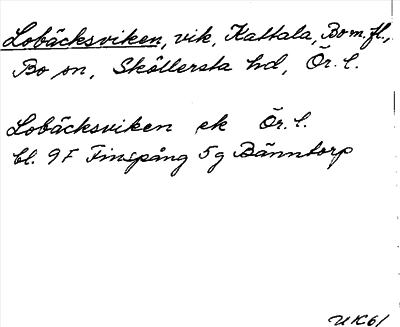 Lobäcksviken, vik, Kattala, Bo m.fl.,
Bo sn, Sköllersta hd, Ör. l.
Lobäcksviken ek Ör. l.
bl. 9F Finspång 5g Bänntorp
UK61